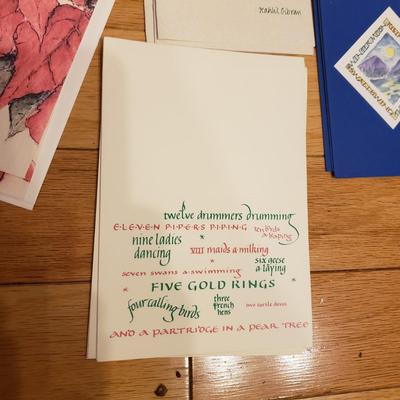 Kahlil Gibran
twelve drummers drumming
ELEVEN PIPERS PIPING
ten lords
a leaping
nine ladies
dancing
VIII maids a milking
six geese
a laying
seven swans a swimming
FIVE GOLD RINGS
four calling birds
three
french
hens
two turtle doves
AND A PARTRIDGE IN A PEAR TREE